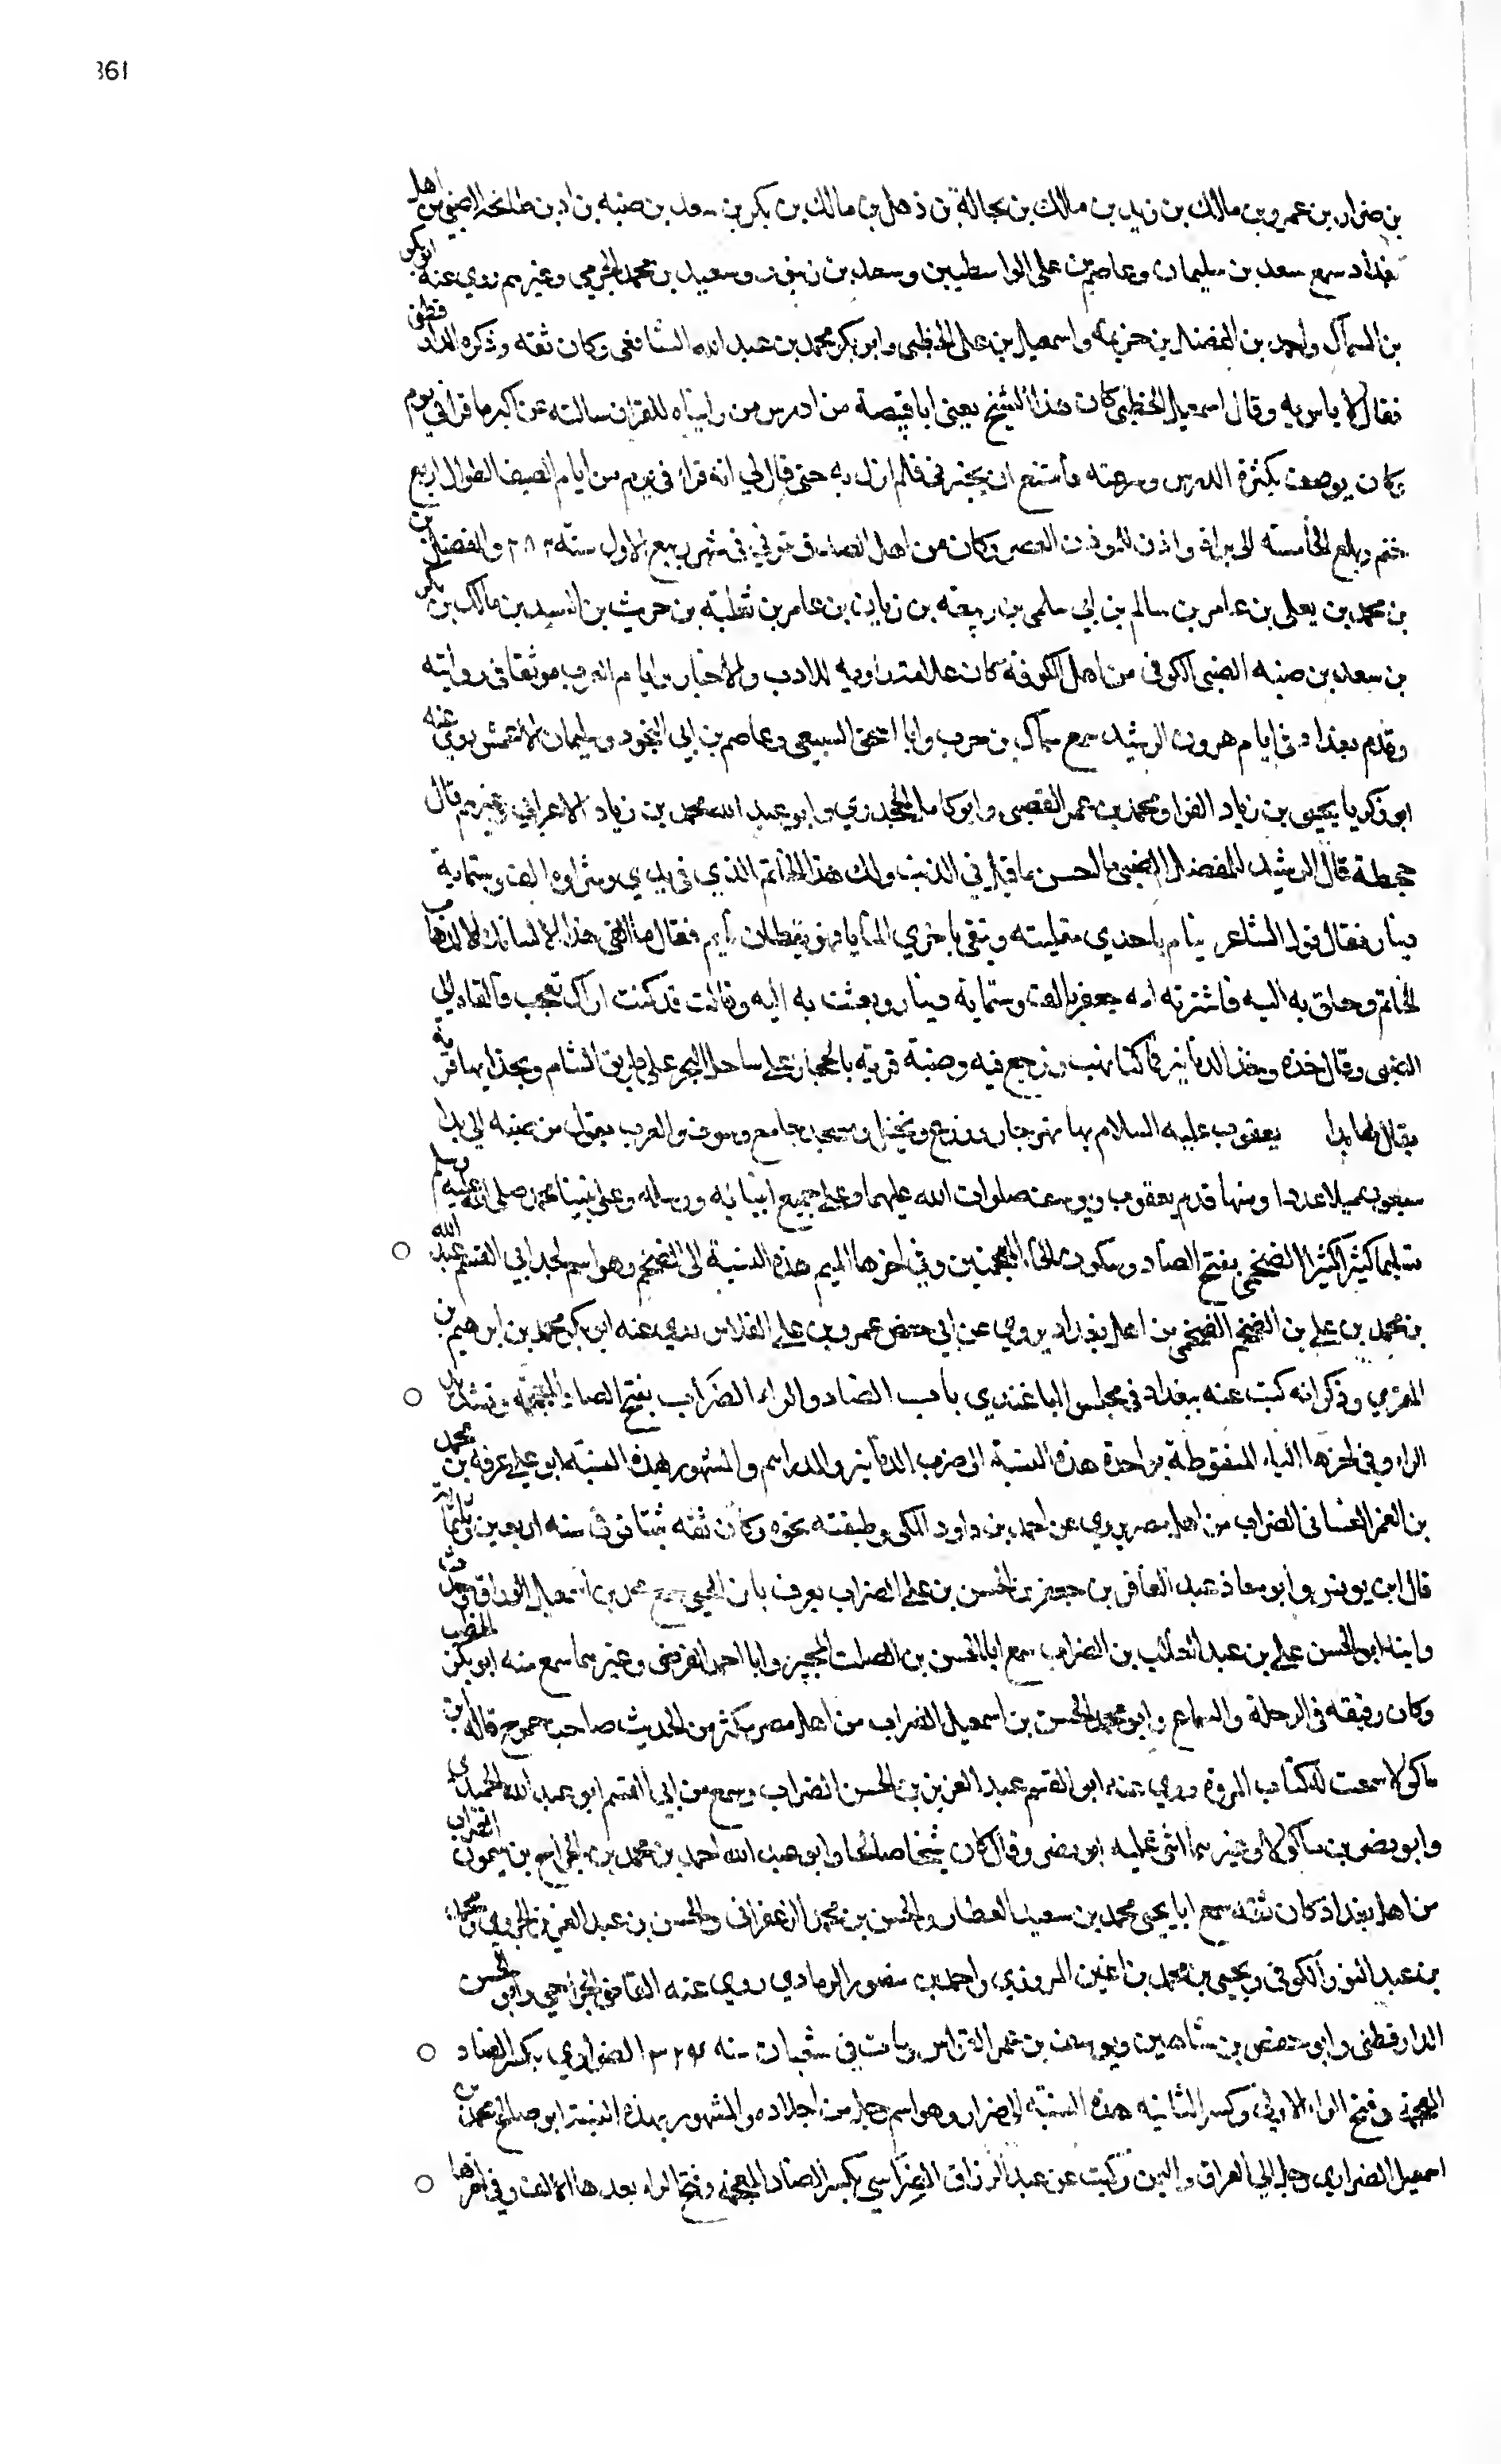 361
بن ضرار بن عمرو بن مالك بن زيد بن مالك بن بجالة بن ذهل بن مالك بن بكر بن سعد بن ضبه بن اد بن طابخه الضبي من اهل
بغداد سمع سعد بن سليمان وعاصم بن علي الواسطيين وسعد بن زنبور وسعيد بن محمد الجرمي وغيرهم روي عنه ابو بكر
بن السماك واحمد بن الفضل بن خزيمه واسمعيل بن علي الخطبي وابو بكر محمد بن عبد الله الشافعي وكان ثقه وذكره الدار قطني
فقال لا باس به وقال اسمعيل الخطبي كان هذا الشيخ يعني ابا قبيصة من ادرس من رايناه للقران سالته عن اكبر ما قرا في يوم
وكان يوصف بكثرة الدرس وسرعته فامتنع ان يخبرني فلم ازل به حتي قال لي انه قرا في يوم من ايام الصيف الطوال اربع
ختم وبلغ الخامسته الي براة واذن المؤذن العصر وكان من اهل الصدق توفي في شهر ربيع الاول سنة ٢٨٢ والفضل بن
بن محمد بن يعلي بن عامر بن سالم بن ابي سلمي بن ربيعه بن زبان بن عامر بن ثعلبة بن حريث بن السيد بن مالك بن بكر
بن سعد بن ضبه الضبي الكوفي من اهل الكوفة كان علامة راويه للادب والاخبار وايام العرب موثقا في روايته
وقدم بغداد في ايام هرون الرشيد سمع سماك بن حرب وابا اسحق السبيعي وعاصم بن ابي النجود وسليمان الاعمش روي عنه
ابو زكريا يحيى بن زياد الفرا ومحمد بن عمر القصبي وابو كامل الجحدري وابو عبد الله محمد بن زياد الاعرابي وغيرهم قال
جحظة قال الرشيد للمفضل الضبي ما احسن ما قيل في الذئب ولك هذا الخاتم الذي في يدي وشراوه الف وستماية
دينار فقال قول الشاعر ينام باحدي مقلتيه ويتقي باخري المنايا فهو يقظان نايم فقال ما القي هذا الا لسانك الا لذهاب
الخاتم وحلق به اليه فاشترته ام جعفر بالف وستماية دينار وبعثت به اليه وقالت قد كنت اراك تعجب به فالقاه الي
الضبي وقال خذه وخذ الدنانير فما كنا نهب ونرجع فيه وضبة قرية بالحجاز علي ساحل البحر علي طريق الشام وبحذايها قرية
يقال لها بدا يعقوب عليه السلام بها نهر جار وزرع ونخيل ومسجد جامع وسوق والعرب يقول من ضبه الي بدا
سبعون ميلا عددا ومنها قدم يعقوب ويوسف صلوات الله عليهما وعلي جميع انبيائه ورسله وعلي نبينا محمد صلى الله عليه وسلم
تسليما كثيرا كثيرا الضخمي بفتح الضاد وسكون الخاء المعجمتين وفي اخرها الميم هذه النسبة الى الضخم وهو اسم لجد ابي القسم عبد الله
بن محمد بن علي بن الضخم الضخمي من اهل بغداد يروي عن ابي حفص عمرو بن علي الفلاس روي عنه ابو بكر محمد بن ابراهيم بن
المقري وذكر انه كتب عنه ببغداد في مجلس الباغندي باب الضاد والراء الضراب بفتح الضاد المعجمة وتشديد
الراء وفي اخرها الباء المنقوطة بواحدة هذه النسبة الى ضرب الدنانير والدراهم والمشهور بهذه النسبة ابو علي عرفة بن محمد
بن الغمر الغساني الضراب من اهل مصر يروي عن احمد بن داود المكي وطبقته نحوه وكان ثقه ثبتا توفي سنه اربعين وثلثماية
قال ابن يونس وابو معاذ عبد الغافر بن جعفر بن الحسن بن علي الضراب يعرف بابن سمع محمد بن اسمعيل الوراق حدث
وابنه ابو الحسن علي بن عبد بن الضراب سمع ابا الحسن بن الصلت المجبر وابا احمد الفرضي وغيرهما سمع منه ابو بكر الخطيب
وكان رفيقه في الرحلة والسماع وابو محمد الحسن بن اسمعيل الضراب من اهل مصر مكثر من الحديث صاحب جموع قاله ابن
ماكولا سمعت له كتاب المروة وروي عنه ابو القسم عبد العزيز بن الحسن الضراب وسمع من ابي القسم ابو عبد الله الحميدي
وابو نصر بن ماكولا وغيرهما اثنى عليه ابو نصر وقال كان شيخا صالحا وابو عبد الله احمد بن محمد بن الجراح بن ميمون الضراب
من اهل بغداد كان ثقه سمع ابا يحيى محمد بن سعيد العطار والحسن بن محمد الزعفراني والحسن بن عبد العزيز الجروي ومحمد
بن عبد النور الكوفي ويحيى بن محمد بن اعين المروزي واحمد بن منصور الرمادي روي عنه القاضي الجراحي وابو الحسن
الدارقطني وابو حفص بن شاهين ويوسف بن عمر القواس ومات في شعبان سنه ٣٢٤ الضراري بكسر الضاد
المعجمة وفتح الراء الاولي وكسر الثانيه هذه النسبة الى ضرار وهو اسم رجل من اجداده والمشهور بهذه النسبة ابو صالح محمد بن
اسمعيل الضراري رحل الي العراق واليمن وكتب عن عبد الرزاق الضراسي بكسر الضاد المعجمة وفتح الراء بعدها الالف وفي اخرها